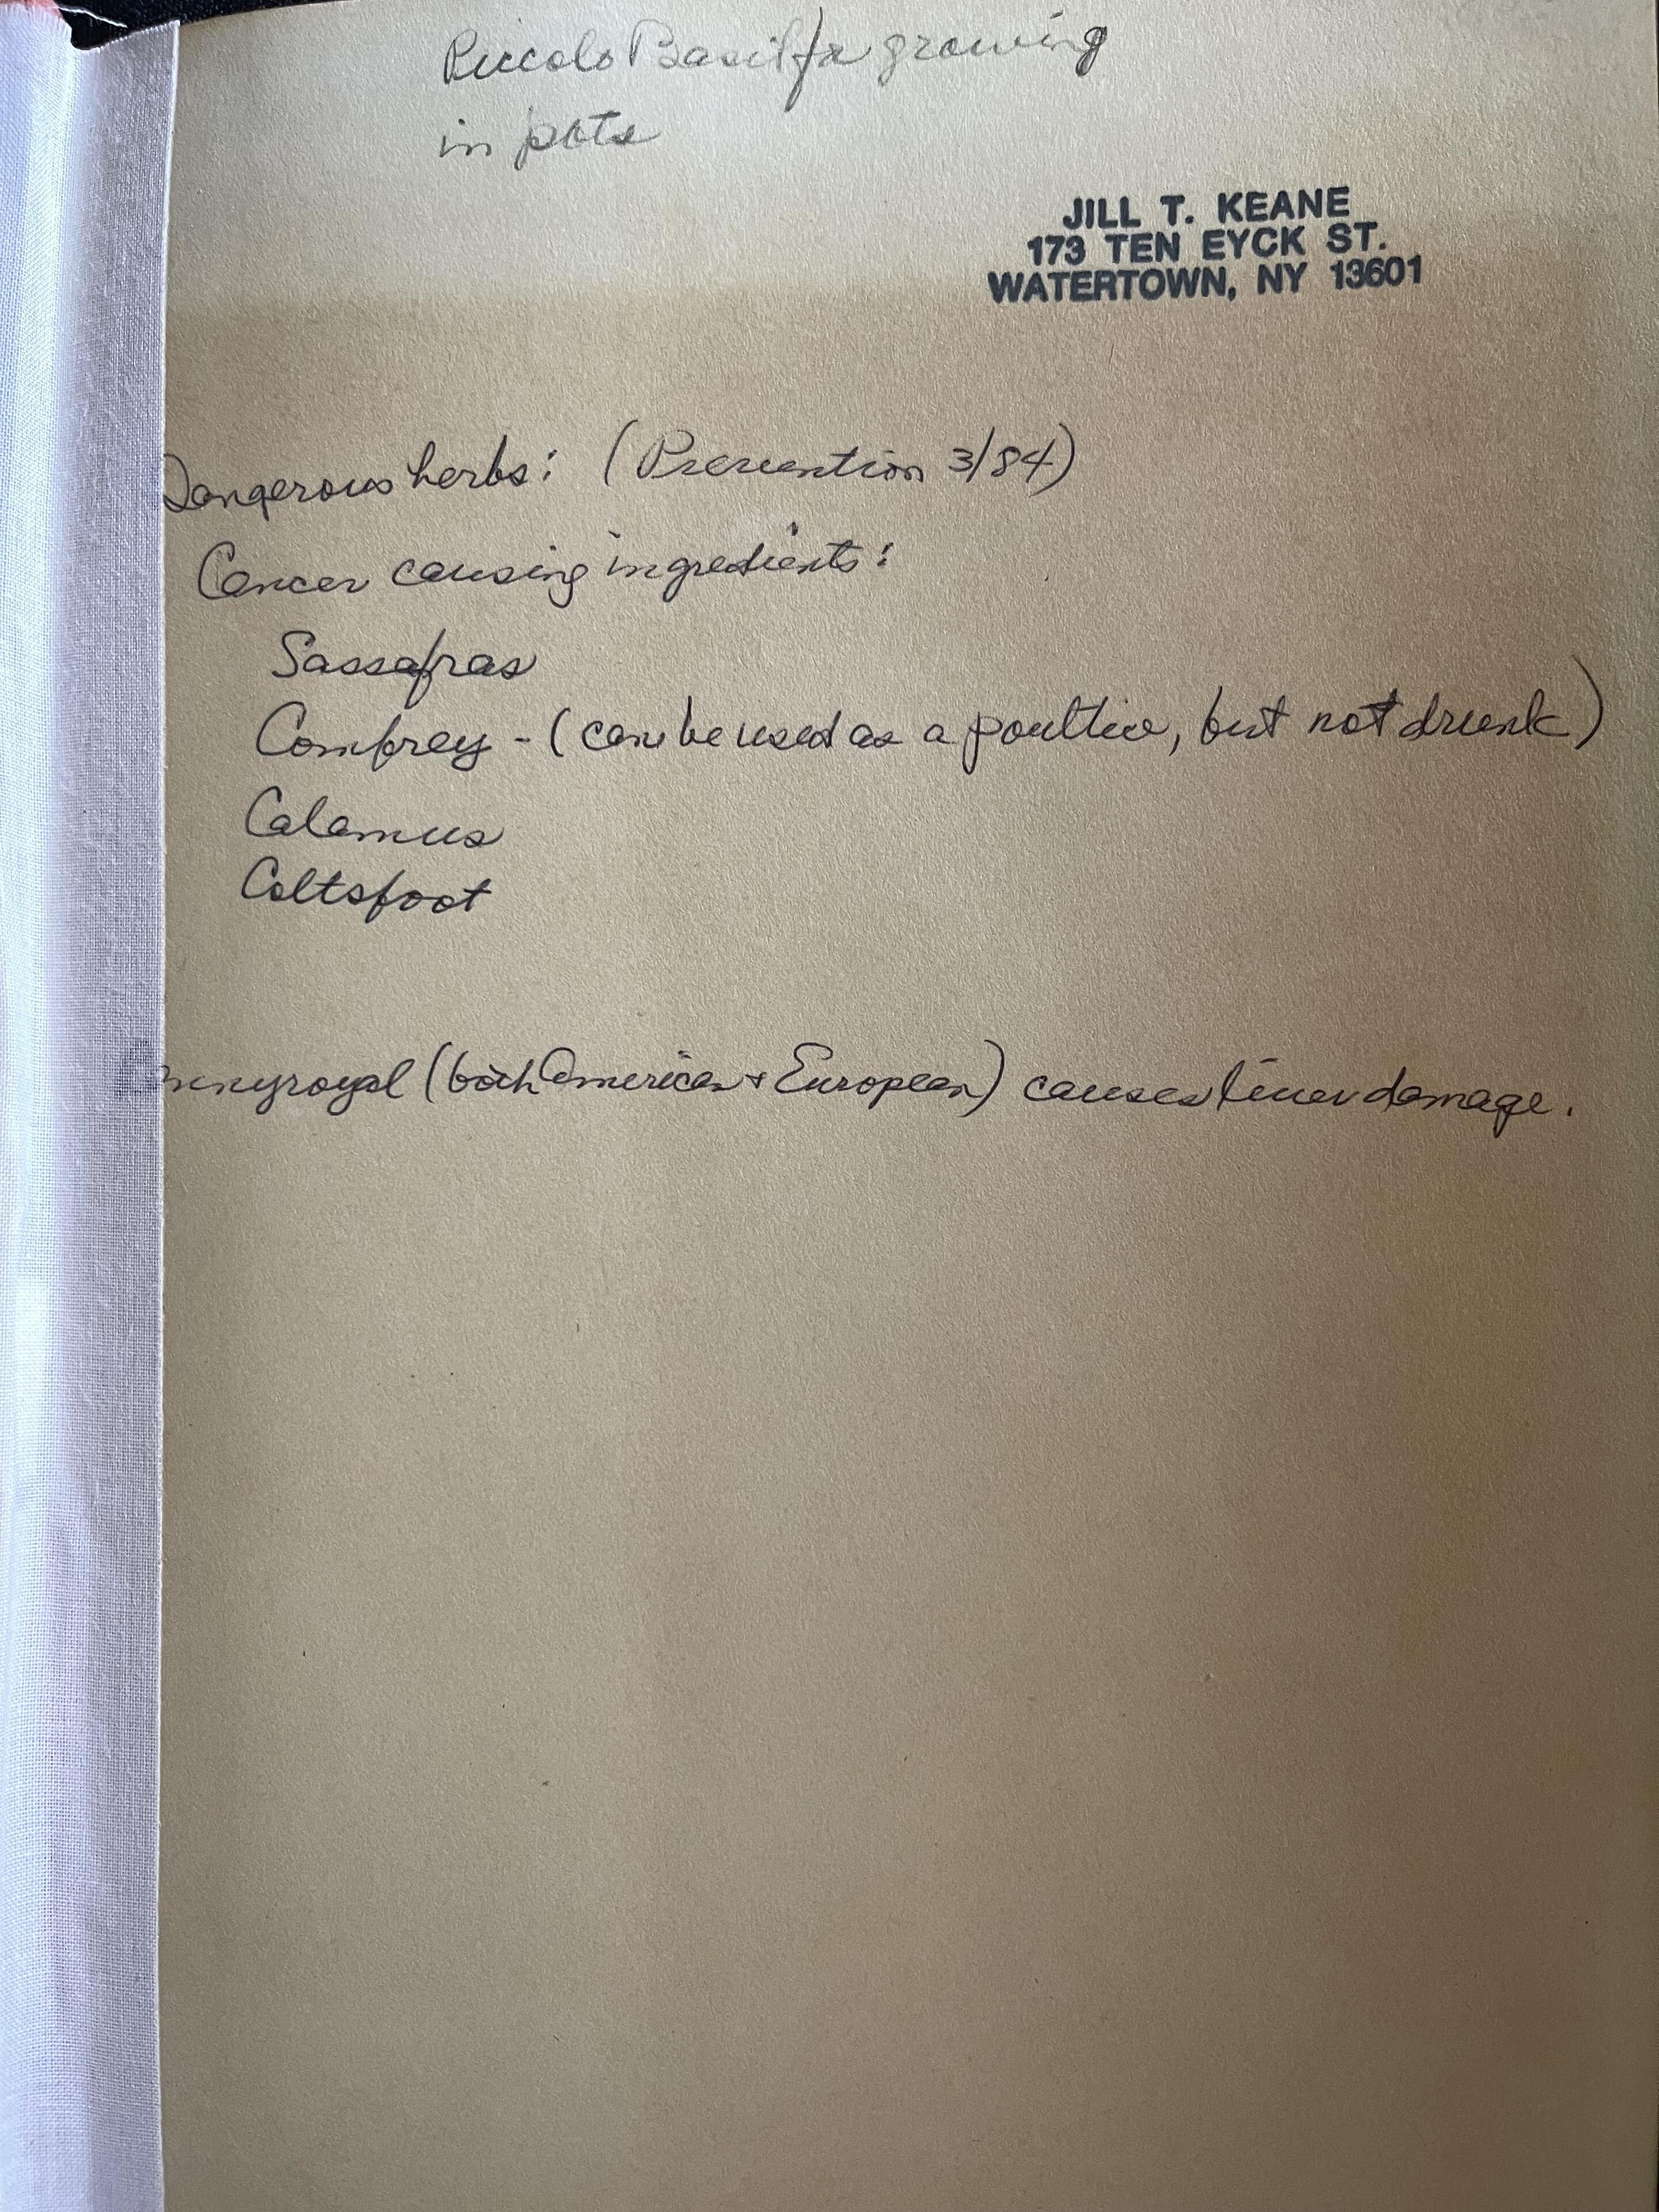 Piccolo Basil for growing
in pots
JILL T. KEANE
173 TEN EYCK ST.
WATERTOWN, NY 13601
Dangerous herbs: (Prevention 3/84)
Cancer causing ingredients:
Sassafras
Comfrey - (can be used as a poultice, but not drunk)
Calamus
Coltsfoot
nnyroyal (both American + European) causes liver damage.